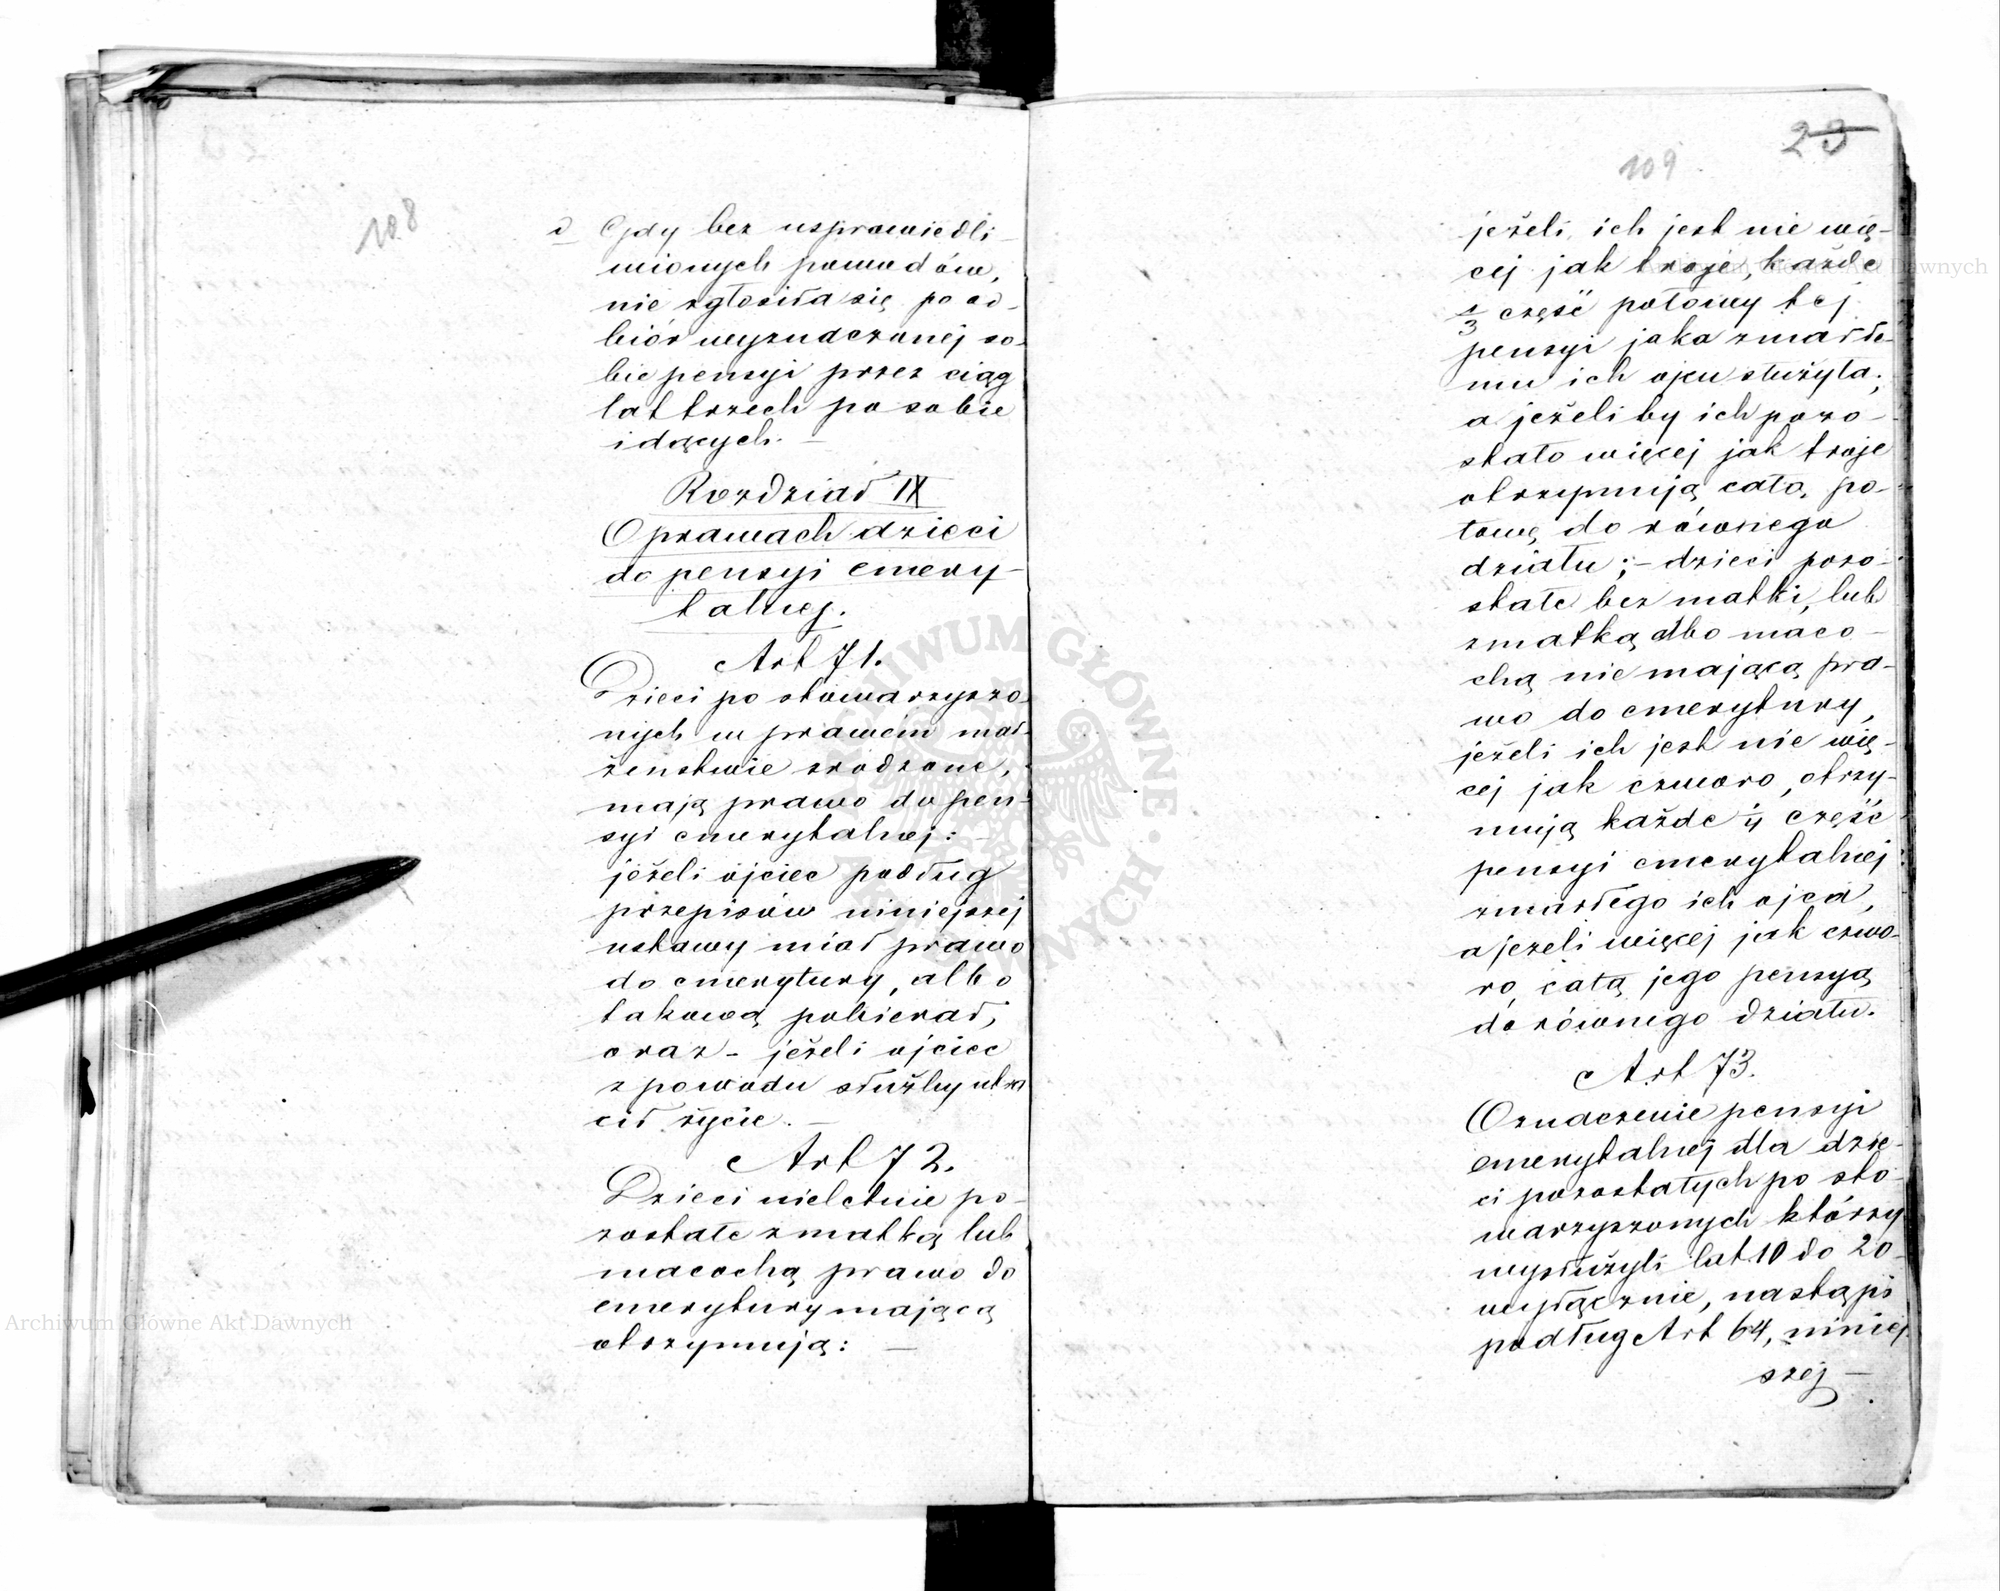 108
d Gdy bez usprawiedli-
wionych powodów,
nie zgłosiła się po od-
biór wyznaczonej so-
bie pensyi przez ciąg
lat trzech po sobie
idących. —
Rozdział IX
O prawach dzieci
do pensyi emery-
talnej.
Art 71.
Dzieci po stowarzyszo-
nych w prawem mał-
żenstwie zrodzone,
mają prawo do pen-
syi emerytalnej: —
jeżeli ojciec podług
przepisów niniejszej
ustawy miał prawo
do emerytury, albo
takową pobierał,
oraz - jeżeli ojciec
z powodu służby utra
cił życie. —
Art 72.
Dzieci nieletnie po-
zostałe z matką lub
macochą prawo do
emerytury mającą
otrzymują: —
23
109
jeżeli ich jest nie wię-
cej jak troje, każde
1/3 część połowy tej
pensyi jaka zmarłe-
mu ich ojcu służyła;
a jeżeli by ich pozo-
stało więcej jak troje
otrzymują całą po-
łowę do równego
działu; - dzieci pozo-
stałe bez matki, lub
z matką albo maco-
chą nie mającą pra-
wo do emerytury,
jeżeli ich jest nie wię-
cej jak czworo, otrzy-
mują każde 1/4 część
pensyi emerytalnej
zmarłego ich ojca,
a jeżeli więcej jak czwo-
ro, całą jego pensyą
do równego działu.
Art 73.
Oznaczenie pensyi
emerytalnej dla dzie-
ci pozostałych po sto-
warzyszonych którzy
wysłużyli lat 10 do 20
wyłącznie, nastąpi
podług Art 64, niniej-
szej —
Archiwum Główne Akt Dawnych
Archiwum Główne Akt Dawnych